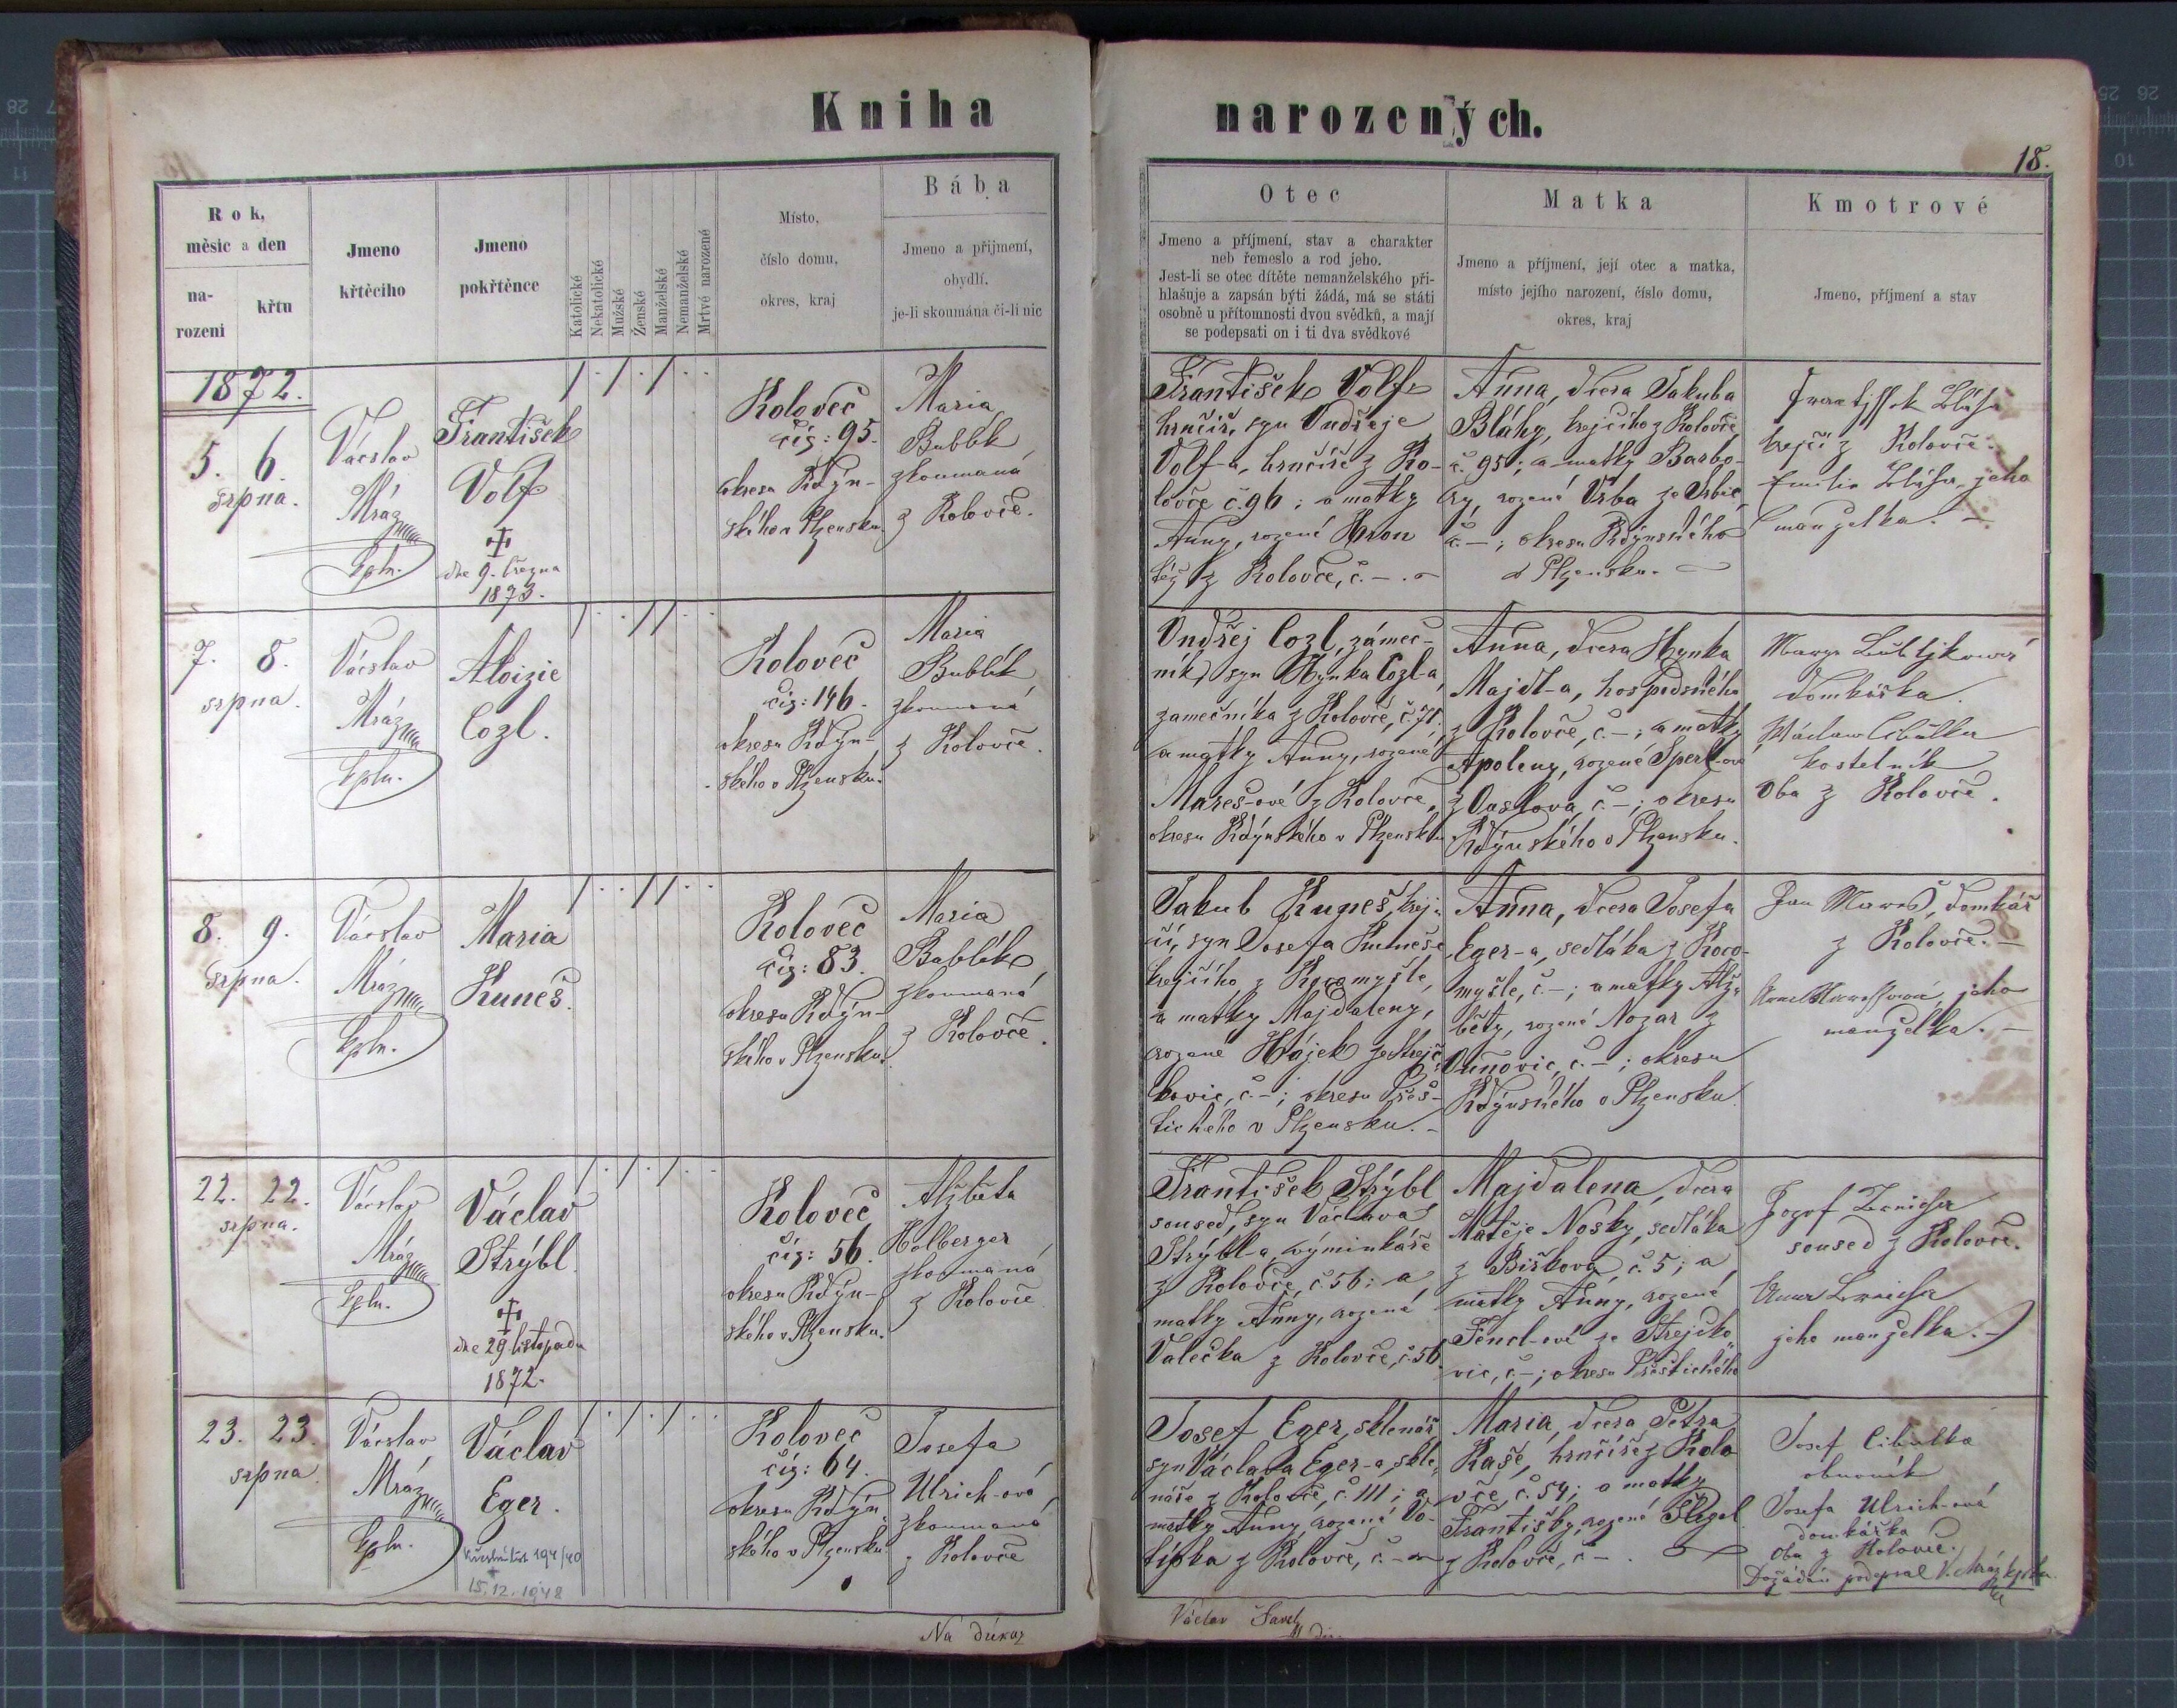 Kniha narozených.
18.
Rok,
měsíc a den
na-
rození
křtu
Jmeno
křtěcího
Jmeno
pokřtěnce
Katolické
Nekatolické
Mužské
Ženské
Manželské
Nemanželské
Mrtvě narozené
Místo,
číslo domu,
okres, kraj
Bába
Jmeno a přijmení,
obydlí,
je-li skoumána či-li nic
Otec
Jmeno a příjmení, stav a charakter
neb řemeslo a rod jeho.
Jest-li se otec dítěte nemanželského při-
hlašuje a zapsán býti žádá, má se státi
osobně u přítomnosti dvou svědků, a mají
se podepsati on i ti dva svědkové
Matka
Jmeno a příjmení, její otec a matka,
místo jejího narození, číslo domu,
okres, kraj
Kmotrové
Jmeno, příjmení a stav
1872.
5. 6.
srpna.
Václav
Mráz
kpln.
František
Volf
dne 9. března
1873.
Koloveč
čís: 95.
okresu Kdýn-
ského v Plzensku.
Maria
Bublík
zkoumaná
z Kolovče.
František Volf
hrnčíř, syn Ondřeje
Volf-a, hrnčíře z Ko-
lovče č. 96; a matky
Anny, rozené Hron
též z Kolovče, č. –.
Anna, dcera Jakuba
Bláhy, krejčího z Kolovče,
č. 95; a matky Barbo-
ry, rozené Vrba ze Srbic,
č. –; okresu Kdýnského
v Plzensku.
Frantjssek Bláha
krejčí z Kolovče.
Emilie Bláha, jeho
manželka. –
7. 8.
srpna.
Václav
Mráz
kpln.
Aloizie
Cozl.
Koloveč
čís: 146.
okresu Kdýn-
ského v Plzensku.
Maria
Bublík
zkoumaná
z Kolovče.
Ondřej Cozl, zámeč-
ník, syn Hynka Cozl-a,
zámečníka z Kolovče, č. 71.
a matky Anny, rozené
Mareš-ové z Kolovče,
okresu Kdýnského v Plzensku
Anna, dcera Hynka
Majdl-a, hospodského
z Kolovče, č. –; a matky
Apoleny, rozené Šperl-ové
z Úaslova, č. –; okresu
Kdýnského v Plzensku.
Marye Bubljkowá
domkářka.
Wáclaw Cibulka
kostelník
Oba z Kolovče.
8. 9.
srpna.
Václav
Mráz
kpln.
Maria
Kuneš.
Koloveč
čís: 83.
okresu Kdýn-
ského v Plzensku.
Maria
Bublík
zkoumaná
z Kolovče.
Jakub Kuneš, krej-
čí, syn Josefa Kuneš-e
krejčího z Kocomyšle,
a matky Majdaleny,
rozené Hájek ze Strejč-
kovic, č. –; okresu Přeš-
tického v Plzensku. –
Anna, dcera Josefa
Eger-a, sedláka z Koco-
myšle, č. –; a matky Alž-
běty, rozené Nozar z
Úňovic, č. –; okresu
Kdýnského v Plzensku.
Jan Mareš, domkář
z Kolovče. –
jeho
manželka. –
22. 22.
srpna.
Václav
Mráz
kpln.
Václav
Strýbl.
dne 29. listopadu
1872.
Koloveč
čís: 56.
okresu Kdýn-
ského v Plzensku.
Alžběta
Holberger
zkoumaná
z Kolovče
František Strýbl
soused, syn Václava
Strýbl-a, výminkáře
z Kolovče, č. 56; a
matky Anny, rozené
Valečka z Kolovče, č. 56.
Majdalena, dcera
Matěje Nosky, sedláka
z Biřkova, č. 5; a
matky Anny, rozené
Fencl-ové ze Strejčko-
vic, č. –; okresu Přeštického
Jozef
soused z Kolovče.
Anna
jeho manželka. –
23. 23.
srpna.
Václav
Mráz
kpln.
Václav
Eger.
194/40
15.12.1948
Koloveč
čís: 64.
okresu Kdýn-
ského v Plzensku.
Josefa
Ulrich-ová,
zkoumaná
z Kolovče
Josef Eger, sklenář,
syn Václava Eger-a, skle-
náře z Kolovče, č. 111; a
matky Anny, rozené Vo-
típka z Kolovče, č. –
Maria, dcera Petra
Kaše, hrnčíře z Kolo-
vče č. 54; a matky
Františky, rozené Flégel
z Kolovče, č. –.
Josef Cibulka
obuvník
Josefa Ulrich-ová
domkářka
Oba z Kolovče.
Dožádán podepsal V. Mráz kpln.
Na důkaz
Václav